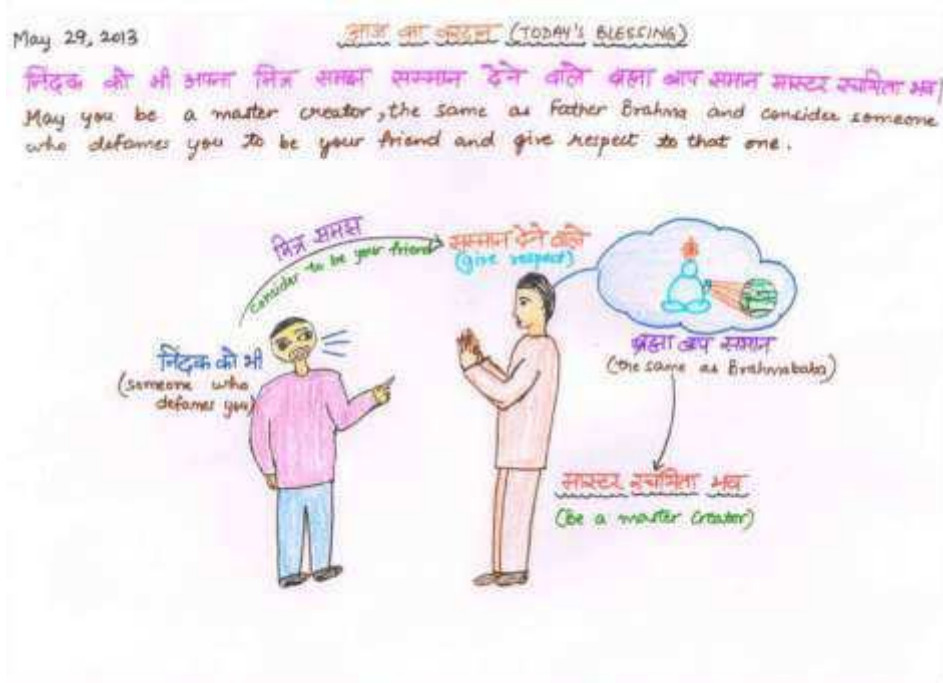 May 29, 2013
आज का वरदान (TODAY'S BLESSING)
निंदक को भी अपना मित्र समझ सम्मान देने वाले ब्रह्मा बाप समान मास्टर रचयिता भव।
May you be a master creator, the same as Father Brahma and consider someone
who defames you to be your friend and give respect to that one.
मित्र समझ
consider to be your friend
सम्मान देने वाले
(give respect)
निंदक को भी
(someone who
defames you)
ब्रह्मा बाप समान
(the same as Brahmababa)
मास्टर रचयिता भव
(Be a master creator)